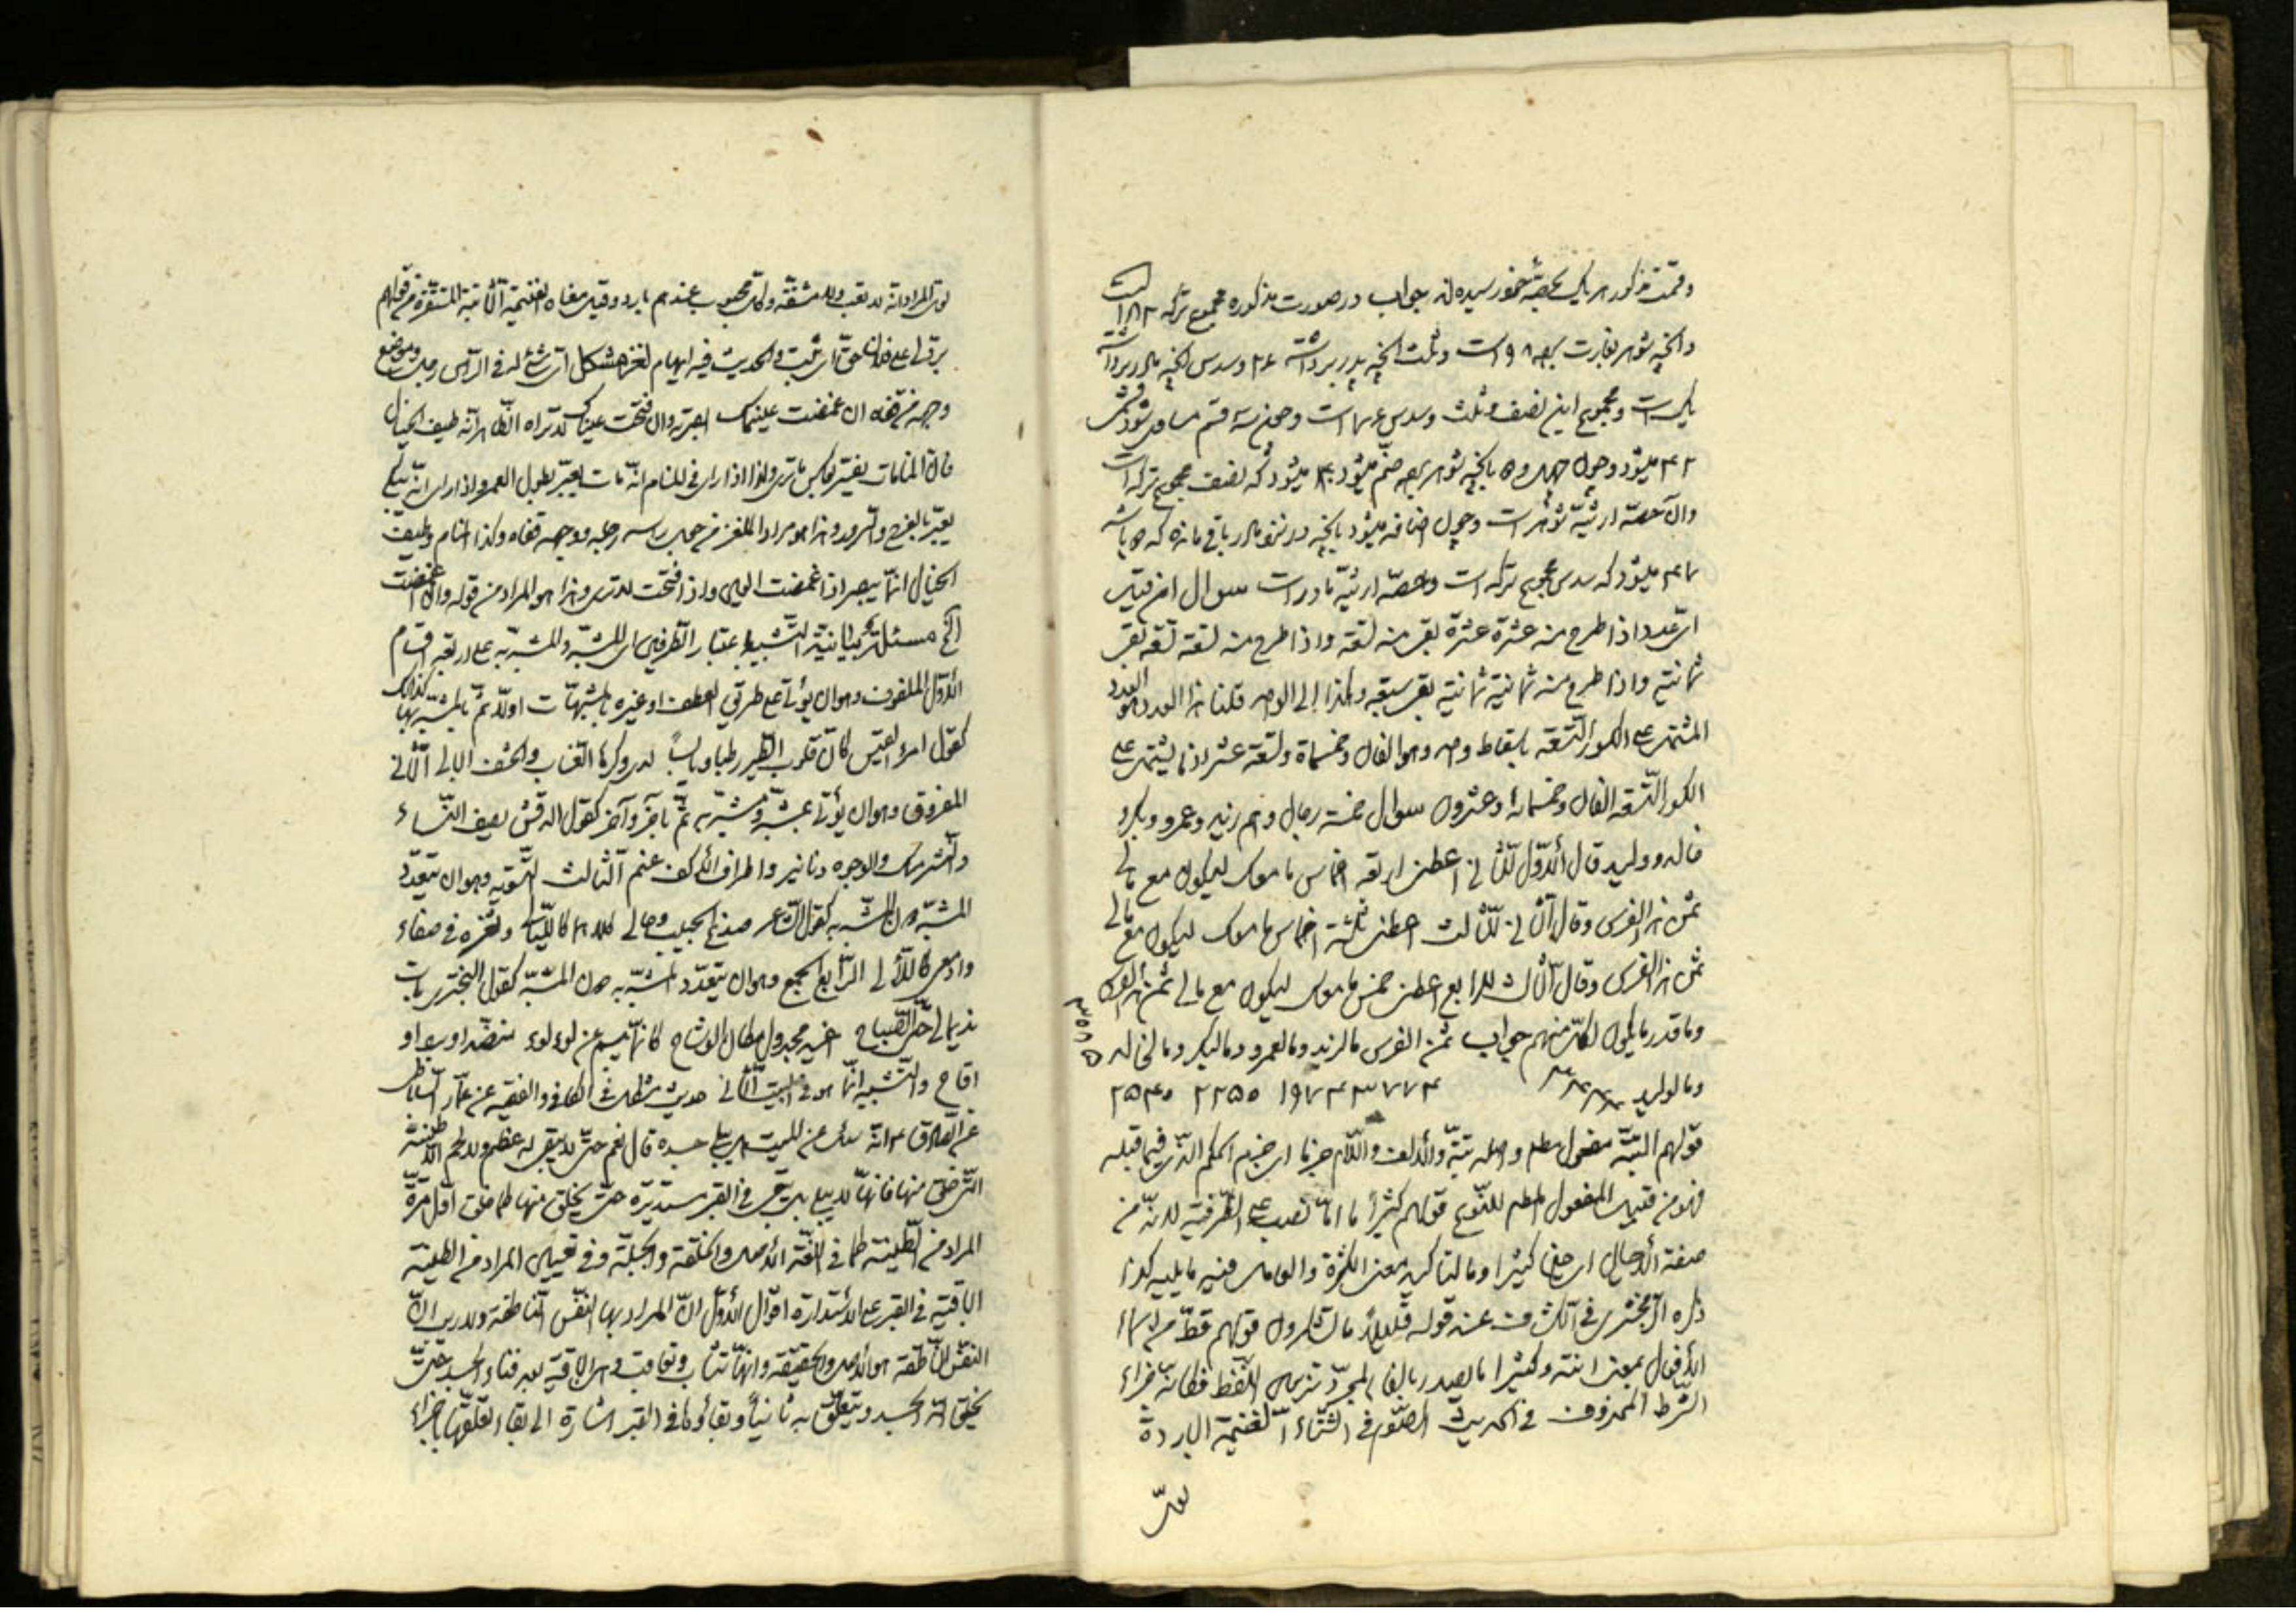 وقسمت مذکور هر یک بحصهٔ خود رسیده‌اند جواب در صورت مذکوره مجموع ترکه است
وانچه شوهر بغارت برده ۹۸ است وثلث انچه پدر برداشته وسدس انچه مادر برداشته
یک است ومجموع این نصف وثلث وسدس است وچون سه قسم مساوی شود
میشود وچون با انچه شوهر برده ضم میشود میشود که نصف مجموع ترکه است
وآن حصهٔ ارثیهٔ شوهر است وچون اضافه میشود بانچه در نزد مادر باقی مانده که باشد
میشود که سدس مجموع ترکه است وحصهٔ ارثیهٔ مادر است سوال ان قیل
ای عدد اذا طرح منه عشرة عشرة بقی منه تسعة واذا طرح منه تسعة تسعة بقی
ثمانیة واذا طرح منه ثمانیة ثمانیة بقی سبعة وهکذا الی الواحد قلنا هذا العدد هو العدد
المشتمل علی الکسور التسعة باسقاط واحد وهو الفان وخمسماة وتسعة عشر اذ ما یشتمل علی
الکسور التسعة الفان وخمسمائة وعشرون سوال خمسة رجال وهم زید وعمرو وبکر و
خالد وولید قال الأول للثانی اعطنی اربعة اخماس ما معک لیکون مع مالی
ثمن هذا الفرس وقال الثانی للثالث اعطنی ثلثة اخماس ما معک لیکون مع مالی
ثمن هذا الفرس وقال الثالث للرابع اعطنی خمس ما معک لیکون مع مالی ثمن هذا الفرس
وما قدر ما یکون لکل منهم جواب ثمن الفرس مالزید ومالعمرو ومالبکر ومالخالد
ومالولید
قولهم البتة مفعول مطلق واصله بتة والألف واللام جزما ای جزم الحکم الذی فیما قبله
فهو من قبیل المفعول المطلق للنوع قولهم کثیراً ما امّا نصب علی الظرفیة لانه من
صفة الأحیان ای حینا کثیرا وما لتاکید معنی الکثرة والعامل فیه ما یلیه کذا
ذکره الزمخشری فی الکشاف عند قوله قلیلاً ما تشکرون قولهم قط من اسماء
الأفعال بمعنی انته وکثیرا ما یصدر بالفاء لمجرد تزیین اللفظ فکانه جزاء
الشرط المحذوف فی الحدیث الصوم فی الشتاء الغنیمة الباردة
لعل
لعل المراد انه لا تعب ولا مشقة وکل محبوب عندهم بارد وقیل معناه الغنیمة الثابتة المستقرة من قولهم
برد لی علی فلان حق ای ثبت فی الحدیث فیه ایهام لغز مشکل ای شئ له فی الرأس رجل وموضع
وجهه منه قفاه ان غمضت عینک ابصرته وان فتحت عینک لا تراه الظاهر انه طیف الخیال
فان المنامات یفسر بعکس ما تری ولذا اذا رای فی المنام انه مات یعبر بطول العمر واذا رای انه یبکی
یعبر بالفرح والسرور وهذا هو مراد الملغز من جعل راسه رجله ووجهه قفاه وکذا المنام وطیف
الخیال انما یبصر اذا غمضت العین واذا فتحت لا تری وهذا هو المراد من قوله وان غمضت
الخ مسئلة بیانیة التشبیه باعتبار الطرفین ای المشبه والمشبه به علی اربعة اقسام
الأول الملفوف وهو ان یؤتی علی طریق العطف او غیره بالمشبهات اولا ثم بالمشبه بها کذلک
کقول امرء القیس کان قلوب الطیر رطبا ویابساً لدی وکرها العناب والحشف البالی الثانی
المفروق وهو ان یؤتی بمشبه ومشبه به ثم بآخر وآخر کقول المرقش یصف النساء
والنشر مسک والوجوه دنانیر واطراف الأکف عنم الثالث التسویة وهو ان یتعدد
المشبه دون المشبه به کقول الشاعر صدغ الحبیب وحالی کلاهما کاللیالی وثغره فی صفاء
وادمعی کاللآلی الرابع الجمع وهو ان یتعدد المشبه به دون المشبه کقول البختری بات
ندیما لی حتی الصباح اغید مجدول مکان الوشاح کانما یبسم عن لؤلؤ منضد او برد او
اقاح والتشبیه انما هو فی البیت الثانی حدیث مشکل فی الکافی والفقیه عن عمار الساباطی
عن الصادق ع انه سئل عن المیت هل یبلی جسده قال نعم حتی لا یبقی له عظم ولا لحم الا طینته
التی خلق منها فانها لا یبلی بل یبقی فی القبر مستدیرة حتی یخلق منها کما خلق اول مرة
المراد من الطینة کما فی اللغة الأصل والخلقة والجبلة وفی تعیین المراد من الطینة
الباقیة فی القبر علی الاستدارة اقوال الأول ان المراد بها النفس الناطقة ولا ریب ان
النفس الناطقة هو الأصل والحقیقة وانها تثاب وتعاقب وهی الباقیة بعد فناء الجسد حتی
یخلق الله الجسد ویتعلق به ثانیاً وبقاؤها فی القبر اشارة الی بقاء تعلقها باجزاء